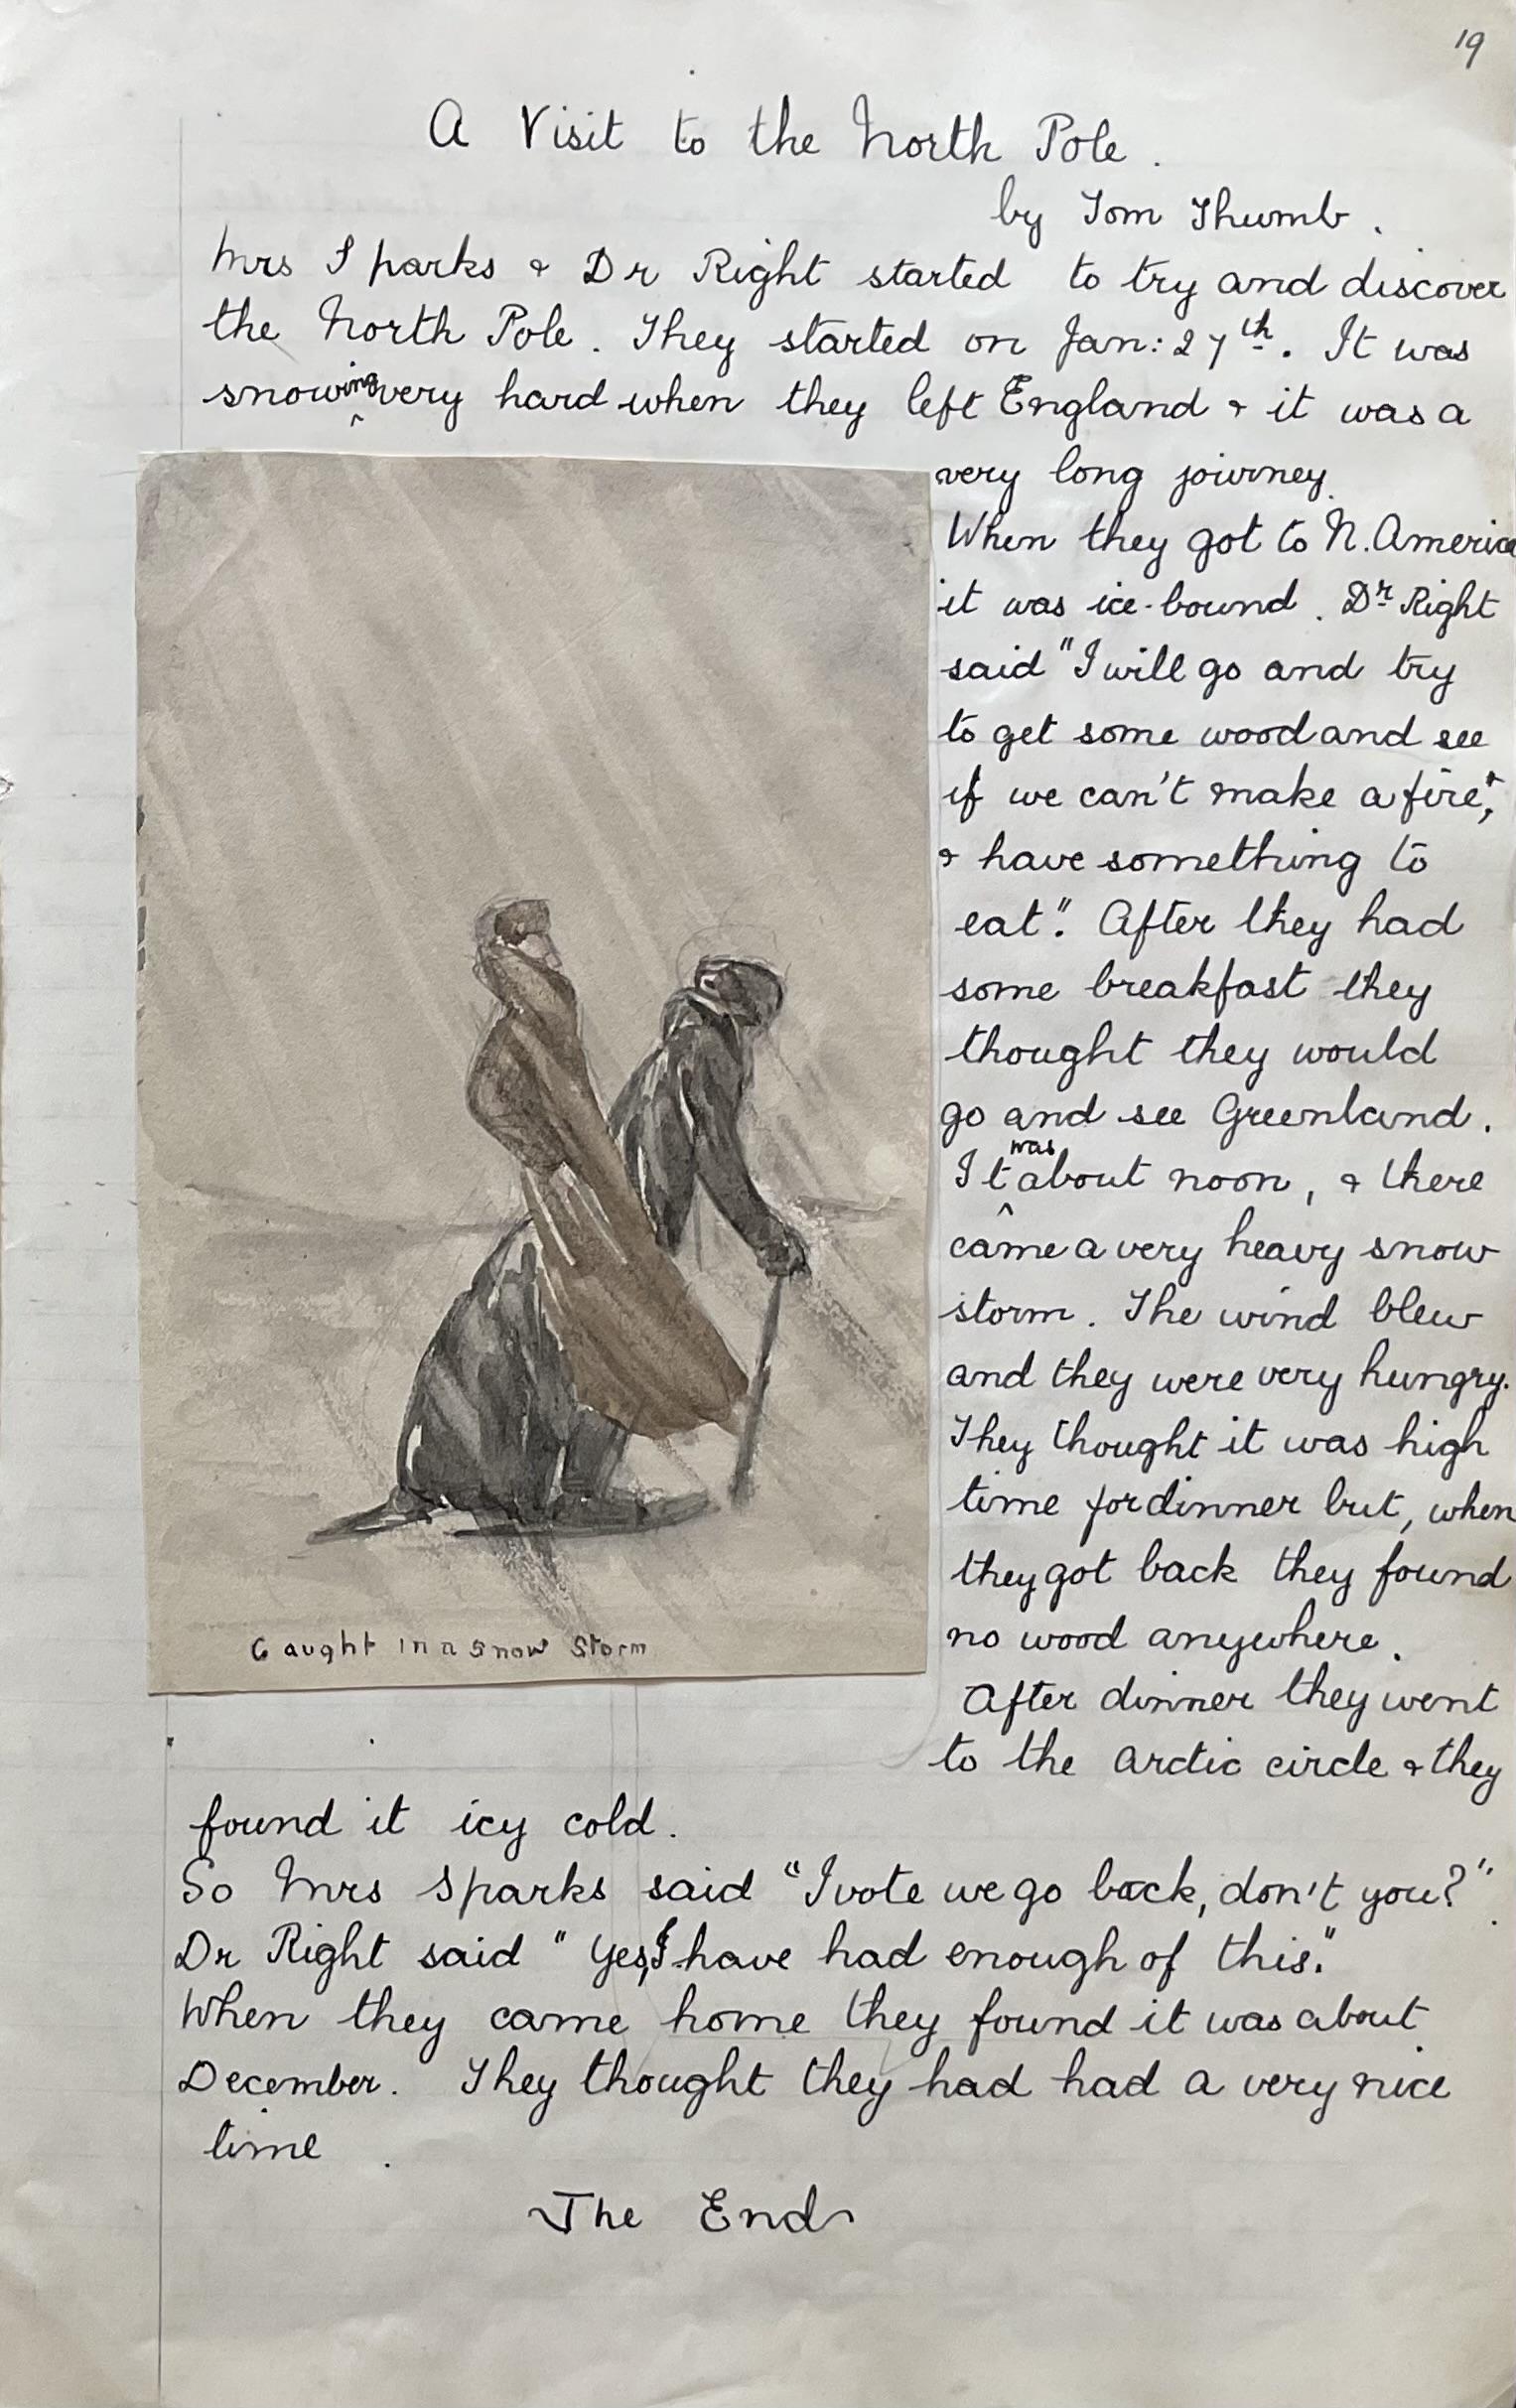 19
A Visit to the North Pole.
by Tom Thumb.
Mrs Sparks & Dr Right started to try and discover
the North Pole. They started on Jan: 27th. It was
snowing very hard when they left England & it was a
very long journey.
When they got to N. America
it was ice-bound. Dr Right
said "I will go and try
to get some wood and see
if we can't make a fire",
& have something to
eat". After they had
some breakfast they
thought they would
go and see Greenland.
It was about noon, & there
came a very heavy snow
storm. The wind blew
and they were very hungry.
They thought it was high
time for dinner but, when
they got back they found
no wood anywhere.
After dinner they went
to the arctic circle & they
found it icy cold.
So Mrs Sparks said "I vote we go back, don't you?"
Dr Right said "Yes, I have had enough of this."
When they came home they found it was about
December. They thought they had had a very nice
time.
The End
Caught in a Snow Storm